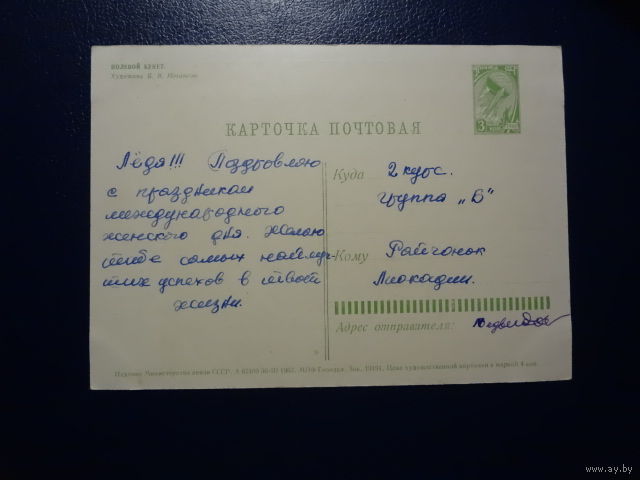 ПОЛЕВОЙ БУКЕТ.
КАРТОЧКА ПОЧТОВАЯ
Лёдя!!! Поздравляю
с праздником
международного
женского дня. Желаю
тебе самых наилуч-
ших успехов в твоей
жизни.
Куда 2 курс.
группа „Б"
Кому Райчонок
Лиокадии.
Адрес отправителя:
Издание Министерства связи СССР. Цена художественной карточки с маркой 4 коп.
www.ay.by